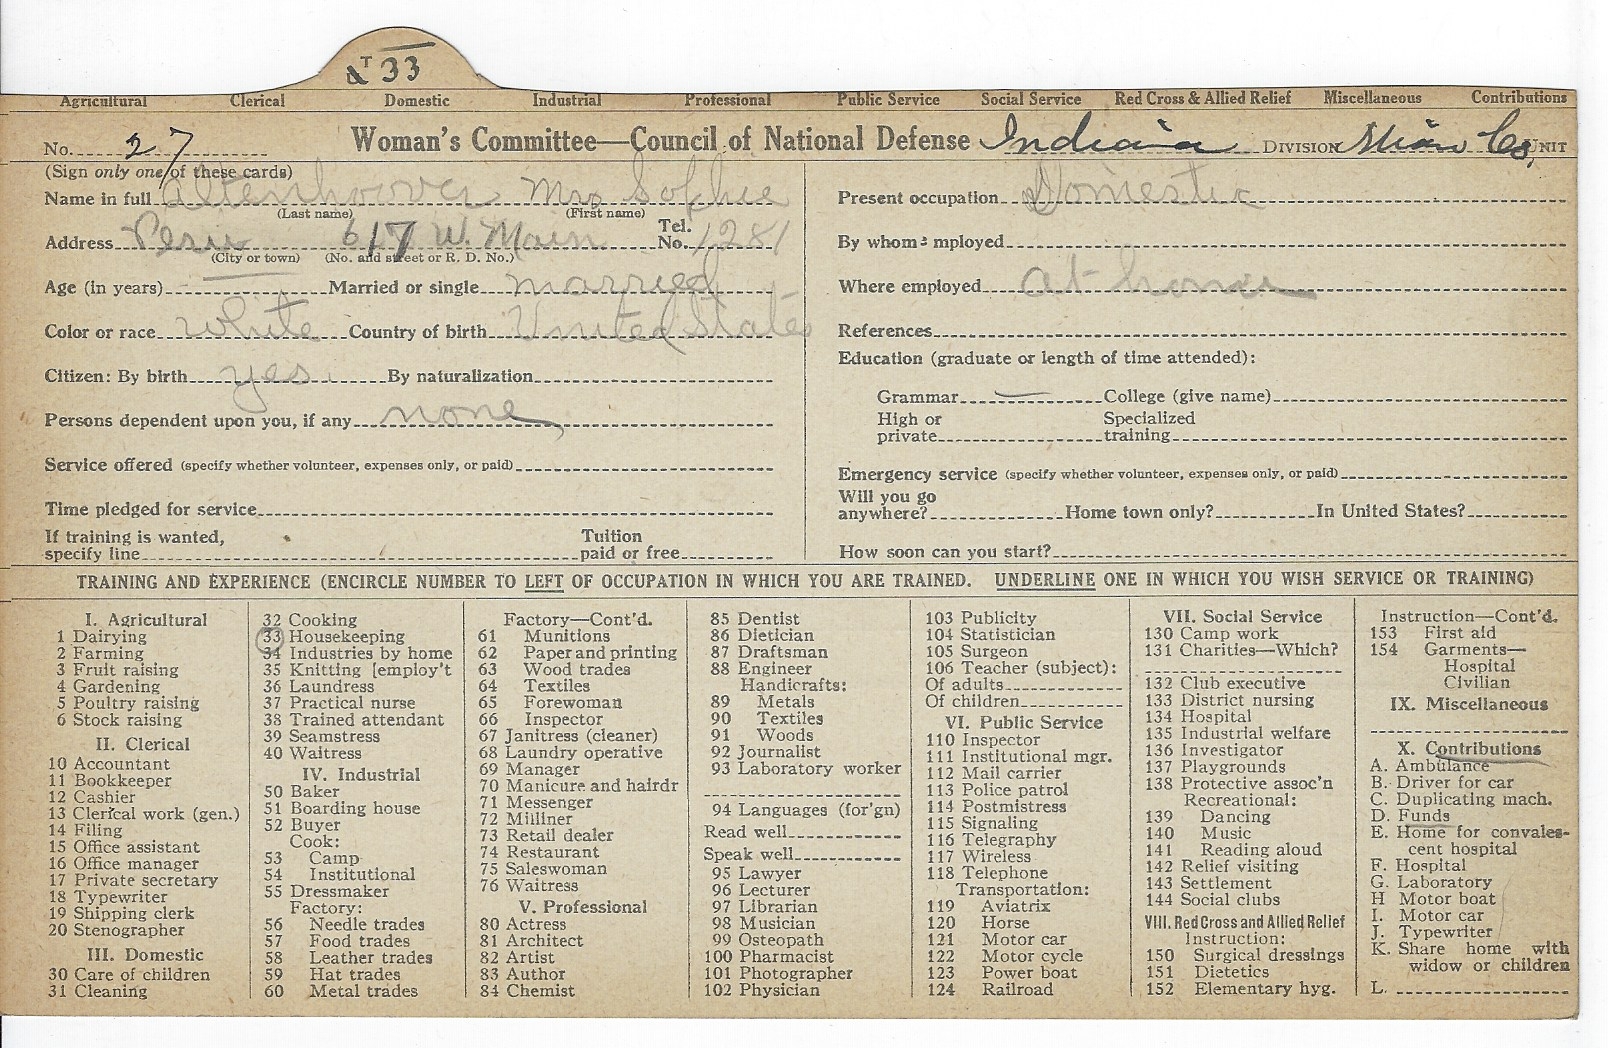 T 33
Agricultural Clerical Domestic Industrial Professional Public Service Social Service Red Cross & Allied Relief Miscellaneous Contributions
No. 27 Woman's Committee—Council of National Defense Indiana DIVISION Miami Co. UNIT
(Sign only one of these cards)
Name in full Altenhoover Mrs Sophie
(Last name) (First name)
Address Peru 617 W. Main Tel. No. 1281
(City or town) (No. and street or R. D. No.)
Age (in years) — Married or single married
Color or race White Country of birth United States
Citizen: By birth yes. By naturalization
Persons dependent upon you, if any none
Service offered (specify whether volunteer, expenses only, or paid)
Time pledged for service
If training is wanted, specify line Tuition paid or free
Present occupation Domestic
By whom employed
Where employed at home
References
Education (graduate or length of time attended):
Grammar — College (give name)
High or private Specialized training
Emergency service (specify whether volunteer, expenses only, or paid)
Will you go anywhere? Home town only? In United States?
How soon can you start?
TRAINING AND EXPERIENCE (ENCIRCLE NUMBER TO LEFT OF OCCUPATION IN WHICH YOU ARE TRAINED. UNDERLINE ONE IN WHICH YOU WISH SERVICE OR TRAINING)
I. Agricultural
1 Dairying
2 Farming
3 Fruit raising
4 Gardening
5 Poultry raising
6 Stock raising
II. Clerical
10 Accountant
11 Bookkeeper
12 Cashier
13 Clerical work (gen.)
14 Filing
15 Office assistant
16 Office manager
17 Private secretary
18 Typewriter
19 Shipping clerk
20 Stenographer
III. Domestic
30 Care of children
31 Cleaning
32 Cooking
33 Housekeeping
34 Industries by home
35 Knitting [employ't
36 Laundress
37 Practical nurse
38 Trained attendant
39 Seamstress
40 Waitress
IV. Industrial
50 Baker
51 Boarding house
52 Buyer
Cook:
53 Camp
54 Institutional
55 Dressmaker
Factory:
56 Needle trades
57 Food trades
58 Leather trades
59 Hat trades
60 Metal trades
Factory—Cont'd.
61 Munitions
62 Paper and printing
63 Wood trades
64 Textiles
65 Forewoman
66 Inspector
67 Janitress (cleaner)
68 Laundry operative
69 Manager
70 Manicure and hairdr
71 Messenger
72 Milliner
73 Retail dealer
74 Restaurant
75 Saleswoman
76 Waitress
V. Professional
80 Actress
81 Architect
82 Artist
83 Author
84 Chemist
85 Dentist
86 Dietician
87 Draftsman
88 Engineer
Handicrafts:
89 Metals
90 Textiles
91 Woods
92 Journalist
93 Laboratory worker
94 Languages (for'gn)
Read well
Speak well
95 Lawyer
96 Lecturer
97 Librarian
98 Musician
99 Osteopath
100 Pharmacist
101 Photographer
102 Physician
103 Publicity
104 Statistician
105 Surgeon
106 Teacher (subject):
Of adults
Of children
VI. Public Service
110 Inspector
111 Institutional mgr.
112 Mail carrier
113 Police patrol
114 Postmistress
115 Signaling
116 Telegraphy
117 Wireless
118 Telephone
Transportation:
119 Aviatrix
120 Horse
121 Motor car
122 Motor cycle
123 Power boat
124 Railroad
VII. Social Service
130 Camp work
131 Charities—Which?
132 Club executive
133 District nursing
134 Hospital
135 Industrial welfare
136 Investigator
137 Playgrounds
138 Protective assoc'n
Recreational:
139 Dancing
140 Music
141 Reading aloud
142 Relief visiting
143 Settlement
144 Social clubs
VIII. Red Cross and Allied Relief
Instruction:
150 Surgical dressings
151 Dietetics
152 Elementary hyg.
Instruction—Cont'd.
153 First aid
154 Garments—
Hospital
Civilian
IX. Miscellaneous
X. Contributions
A. Ambulance
B. Driver for car
C. Duplicating mach.
D. Funds
E. Home for convales-
cent hospital
F. Hospital
G. Laboratory
H Motor boat
I. Motor car
J. Typewriter
K. Share home with
widow or children
L.